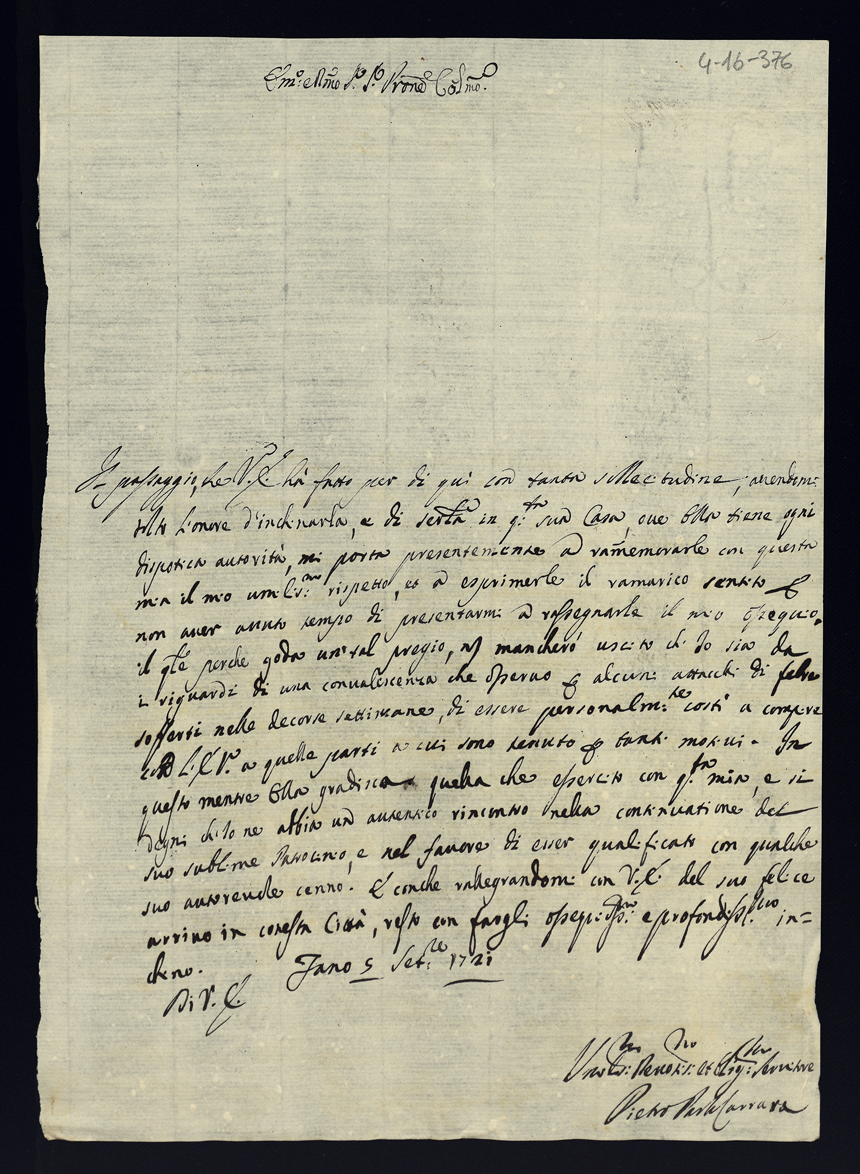 4-16-376
Em.o e R.mo S.r S.r Prone Col.mo
Il passaggio, che V.E. hà fatto per di quì con tanta sollecitudine, avendomi
tolto l'onore d'inchinarla, e di servirla in q.sta sua Casa, ove Ella tiene ogni
dispotica autorità, mi porta presentemente à ramemorarle con questa
mia il mio umiliss.mo rispetto, et à esprimerle il ramarico sentito p
non aver avuto tempo di presentarmi à rassegnarle il mio ossequio,
il qle perche goda un tal pregio, nõ mancherò uscito ch'Io sia da
i riguardi di una convalescenza che osservo p alcuni attacchi di febre
sofferti nelle decorse settimane, di essere personalm.te costì a compire
con L'E.V. a quelle parti a cui sono tenuto p tanti motivi. In
questo mentre Ella gradisca quella che esercito con q.sta mia, e si
degni ch'Io ne abbia un autentico rincontro nella continuatione del
suo sublime Patrocinio, e nel favore di esser qualificato con qualche
suo autorevole cenno. E conche rallegrandomi con V.E. del suo felice
arrivo in cotesta Città, resto con fargli ossequiosiss.mo e profondiss.mo in=
chino.
Fano 5 Set.re 1721
Di V.E.
Umil.mo Devotis.mo et Oblig.mo Servitore
Pietro Paolo Carrara